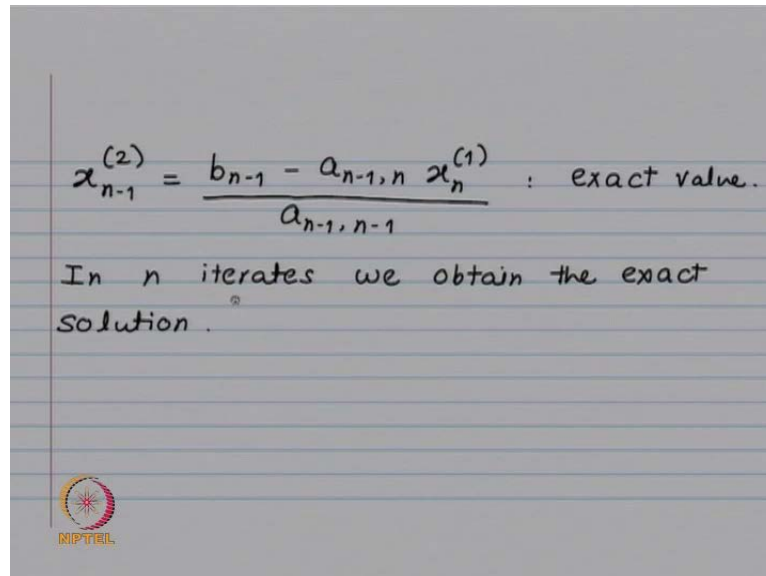 x_{n-1}^{(2)} = \frac{b_{n-1} - a_{n-1,n} x_n^{(1)}}{a_{n-1,n-1}} : exact value.
In n iterates we obtain the exact
solution.
NPTEL